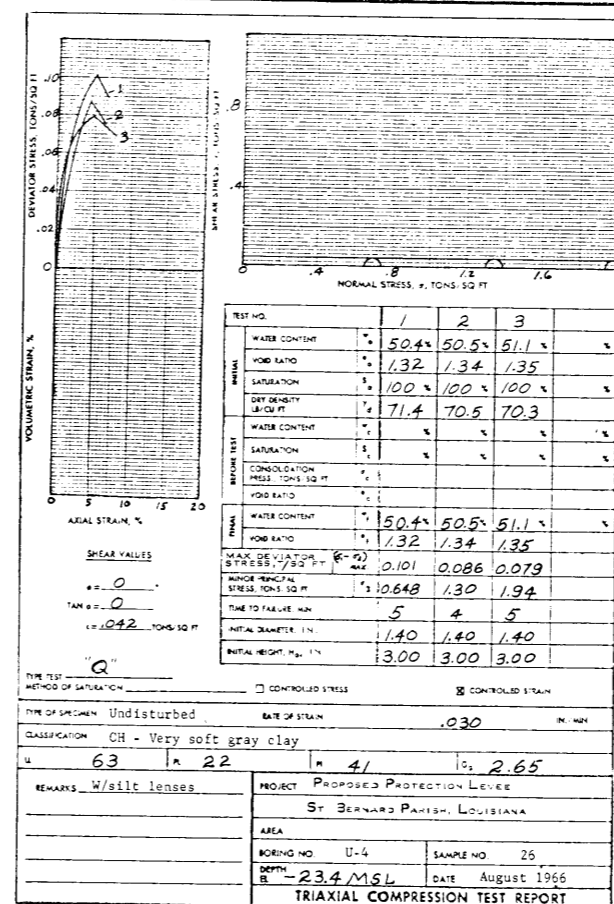 DEVIATOR STRESS, TONS/SQ FT
.10
.08
.06
.04
.02
0
1
2
3
SHEAR STRESS, τ, TONS/SQ FT
.8
.4
0
0 .4 .8 1.2 1.6
NORMAL STRESS, σ, TONS/SQ FT
VOLUMETRIC STRAIN, %
0 5 10 15 20
AXIAL STRAIN, %
TEST NO. 1 2 3
INITIAL
WATER CONTENT 50.4% 50.5% 51.1% %
VOID RATIO 1.32 1.34 1.35
SATURATION 100 % 100 % 100 % %
DRY DENSITY LB/CU FT 71.4 70.5 70.3
BEFORE TEST
WATER CONTENT % % % %
SATURATION % % % %
CONSOLIDATION PRESS., TONS/SQ FT
VOID RATIO
FINAL
WATER CONTENT 50.4% 50.5% 51.1 % %
VOID RATIO 1.32 1.34 1.35
MAX DEVIATOR STRESS, T/SQ FT MAX 0.101 0.086 0.079
MINOR PRINCIPAL STRESS, TONS/SQ FT 0.648 1.30 1.94
TIME TO FAILURE, MIN 5 4 5
INITIAL DIAMETER, IN. 1.40 1.40 1.40
INITIAL HEIGHT, H₀, IN 3.00 3.00 3.00
SHEAR VALUES
ø = 0 °
TAN ø = 0
c = .042 TONS/SQ FT
TYPE TEST "Q"
METHOD OF SATURATION
CONTROLLED STRESS
☒ CONTROLLED STRAIN
TYPE OF SPECIMEN Undisturbed RATE OF STRAIN .030 IN./MIN
CLASSIFICATION CH - Very soft gray clay
LL 63 PL 22 PI 41 Gs 2.65
REMARKS W/silt lenses
PROJECT PROPOSED PROTECTION LEVEE
ST BERNARD PARISH, LOUISIANA
AREA
BORING NO. U-4 SAMPLE NO. 26
DEPTH EL -23.4 MSL DATE August 1966
TRIAXIAL COMPRESSION TEST REPORT